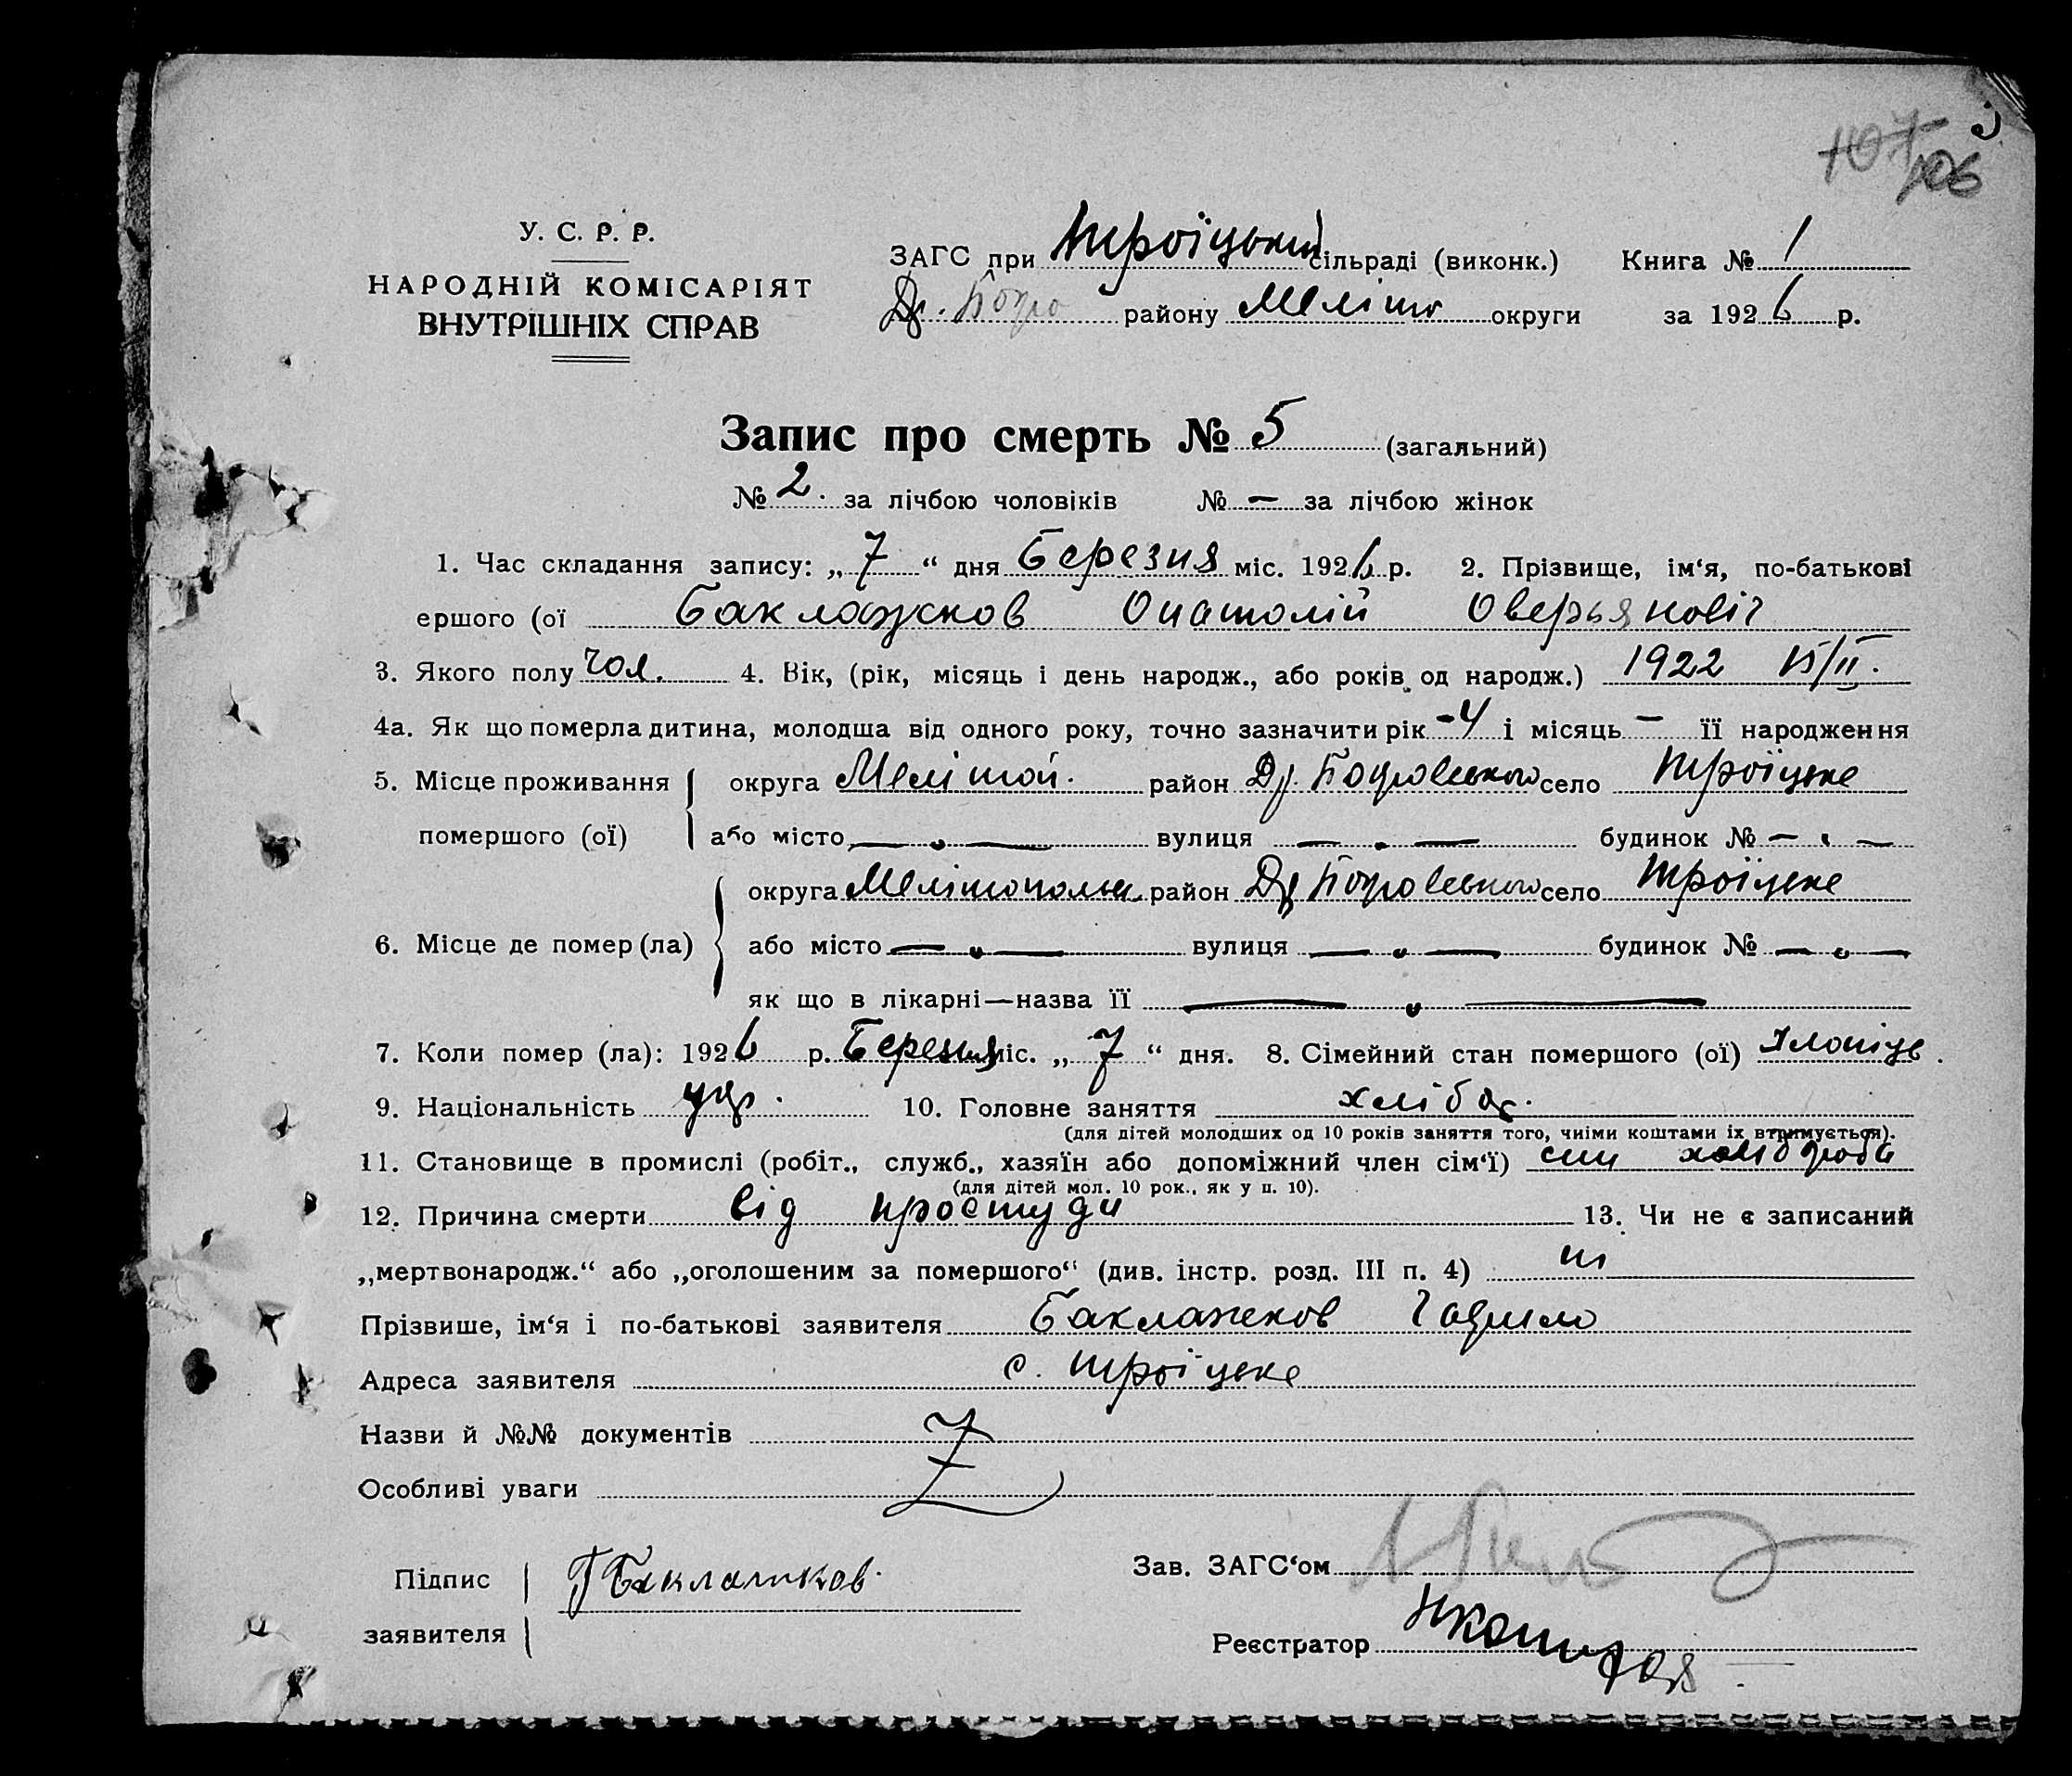 107 106
У. С. Р. Р.
НАРОДНІЙ КОМІСАРІЯТ
ВНУТРІШНІХ СПРАВ
ЗАГС при Троїцький сільраді (виконк.) Книга № 1
Др. Покро району Меліто округи за 1926 р.
Запис про смерть № 5 (загальний)
№ 2. за лічбою чоловіків № — за лічбою жінок
1. Час складання запису: „7“ дня Березня міс. 1926 р. 2. Прізвище, ім‘я, по-батькові
ершого (ої Баклажков Онатолій Оверьяновіч
3. Якого полу чол. 4. Вік, (рік, місяць і день народж., або років од народж.) 1922 15/II.
4а. Як що померла дитина, молодша від одного року, точно зазначити рік -4 і місяць — її народження
5. Місце проживання округа Мелітоп. район Др. Покровського село Троїцьке
помершого (ої) або місто — „ — вулиця — „ — будинок № — „ —
округа Мелітопольск. район Др Покровського село Троїцьке
6. Місце де помер (ла) або місто — „ — вулиця — „ — будинок № — „ —
як що в лікарні—назва її — „ —
7. Коли помер (ла): 1926 р. Березня міс. „7“ дня. 8. Сімейний стан помершого (ої) Хлопіць.
9. Національність укр. 10. Головне заняття хлібор.
(для дітей молодших од 10 років заняття того, чиіми коштами іх втримується).
11. Становище в промислі (робіт., служб., хазяїн або допоміжний член сім‘ї) син хлібороба
(для дітей мол. 10 рок., як у п. 10).
12. Причина смерти від простуди 13. Чи не є записаний
„мертвонародж.“ або „оголошеним за помершого“ (див. інстр. розд. III п. 4) ні
Прізвише, ім‘я і по-батькові заявителя Баклажков Гаврило
Адреса заявителя с. Троїцьке
Назви й №№ документів
Особливі уваги
Підпис Г Баклажков. Зав. ЗАГС‘ом
заявителя Реєстратор